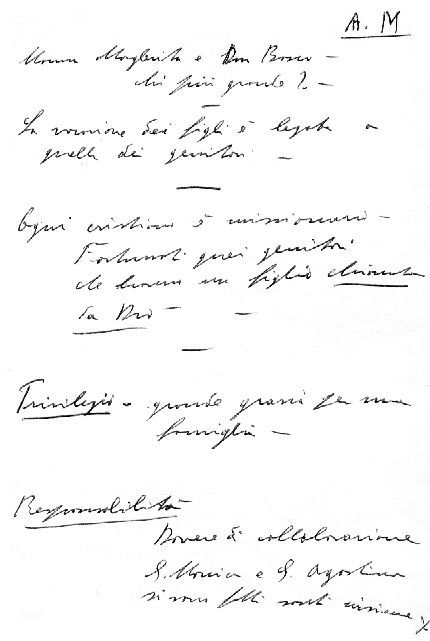 A. M
Mamma Margherita e Don Bosco –
chi più grande? –
La vocazione dei figli è legata a
quella dei genitori –
Ogni cristiano è missionario –
Fortunati quei genitori
che hanno un figlio chiamato
da Dio –
Privilegio – grande grazia per una
famiglia –
Responsabilità
Dovere di collaborazione
S. Monica e S. Agostino
si sono fatti santi insieme